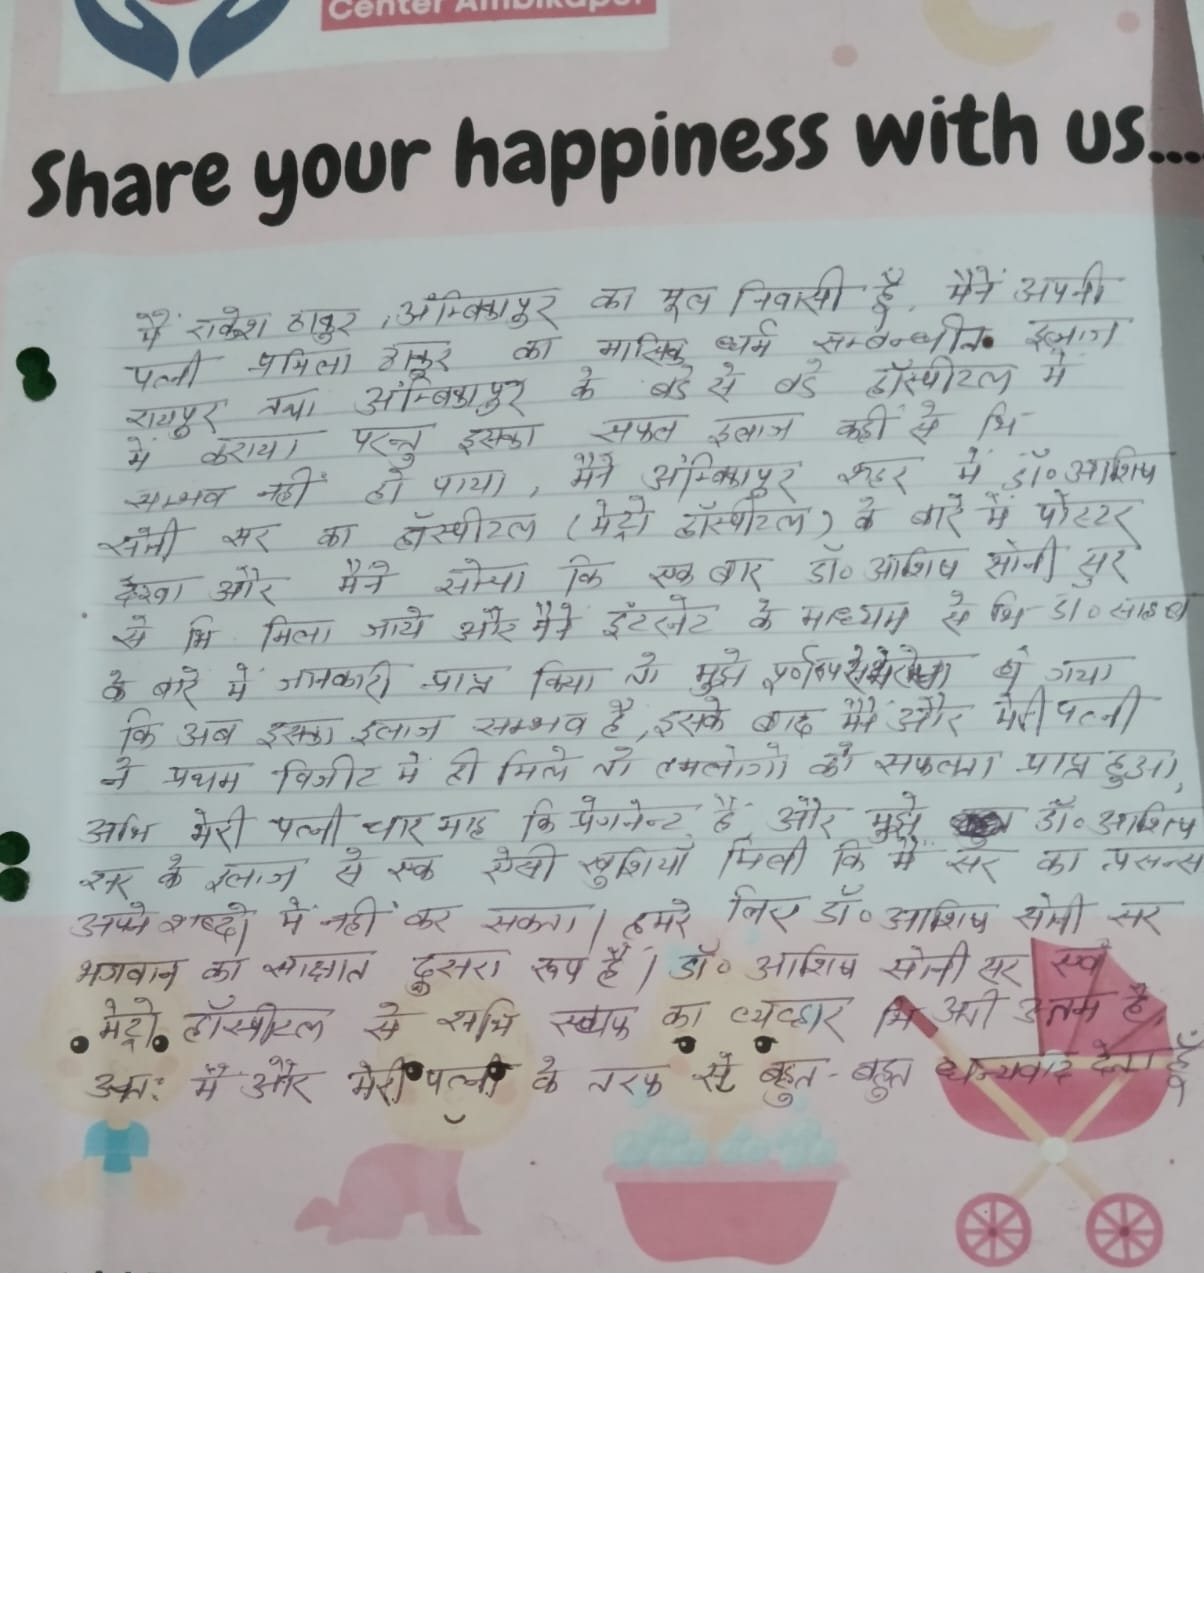 Center Ambikapur
Share your happiness with us....
मैं राकेश ठाकुर, अंम्बिकापुर का मूल निवासी हूँ, मैनें अपनी
पत्नी प्रमिला ठाकुर का मासिक धर्म सम्बन्धीत इलाज
रायपुर तथा अंम्बिकापुर के बडे से बडे हॉस्पीटल में
में कराया परन्तु इसका सफल इलाज कहीं से भि
सम्भव नहीं हो पाया, मैने अंम्बिकापुर शहर में डॉ० आशिष
सोनी सर का हॉस्पीटल (मेट्रो हॉस्पीटल) के बारे में पोस्टर
देखा और मैने सोचा कि एक बार डॉ० आशिष सोनी सर
से भि मिला जाये और मैने इंटरनेट के माध्यम से भि डॉ० साहब
के बारे में जानकारी प्राप्त किया तो मुझे हो गया
कि अब इसका इलाज सम्भव है, इसके बाद मैने और मेरी पत्नी
ने प्रथम विजीट में ही मिले तो हमलोगो को सफलता प्राप्त हुआ,
अभि मेरी पत्नी चार माह कि प्रेगनेन्ट है, और मुझे डॉ० आशिष
सर के इलाज से एक ऐसी खुशियाँ मिली कि मै सर का प्रसन्सा
अपने शब्दो में नहीं कर सकता। हमरे लिए डॉ० आशिष सोनी सर
भगवान का साक्षात दुसरा रूप हैं। डॉ० आशिष सोनी सर एवं
मेट्रो हॉस्पीटल से सभि स्टाफ का व्यव्हार भि अती उत्तम है,
अतः मैं और मेरी पत्नी के तरफ से बहुत-बहुत धन्यवाद देता हूँ